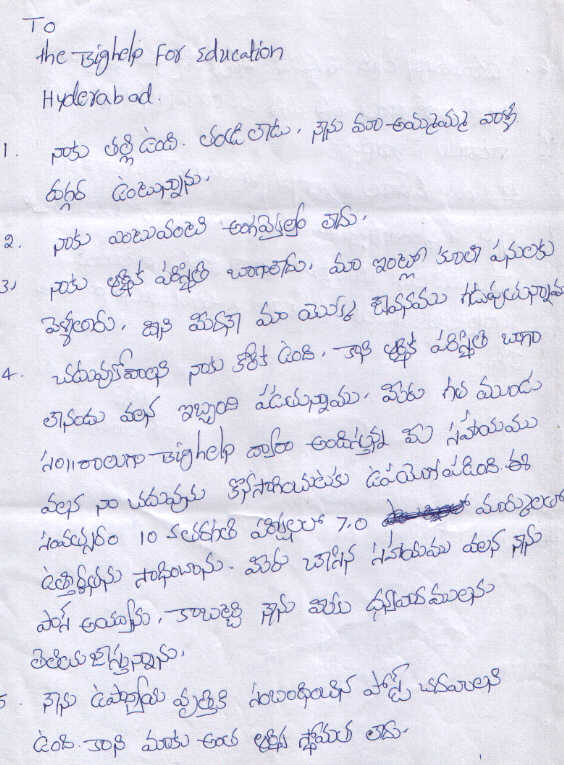 To
the Bighelp For Education
Hyderabad.
1. నాకు తల్లి ఉంది. తండ్రి లేడు. నేను మా అమ్మమ్మ వాళ్ళ
దగ్గర ఉంటున్నాను.
2. నాకు ఎటువంటి అంగవైకల్యం లేదు.
3. నాకు ఆర్థిక పరిస్థితి బాగాలేదు. మా ఇంట్లో కూలి పనులకు
వెళ్తారు. దాని మీదనే మా యొక్క జీవనము గడుపుతున్నాము
4. చదువుకోవాలని నాకు కోరిక ఉంది. కాని ఆర్థిక పరిస్థితి బాగా
లేనందు వలన ఇబ్బంది పడుతున్నాము. మీరు గత మూడు
సం॥రాలుగా Bighelp ద్వారా అందిస్తున్న మీ సహాయము
వలన నా చదువును కొనసాగించుటకు ఉపయోగపడింది. ఈ
సంవత్సరం 10 వతరగతి పరీక్షలలో 7.0 మార్కులలో
ఉత్తీర్ణతను సాధించాను. మీరు చేసిన సహాయము వలన నేను
పాస్ అయ్యాను. కాబట్టి నేను మీకు ధన్యవాదములను
తెలియజేస్తున్నాను.
5. నేను ఉపాధ్యాయ వృత్తికి సంబంధించిన పోస్ట్ చదవాలని
ఉంది. కాని మాకు అంత ఆర్థిక స్తోమత లేదు.